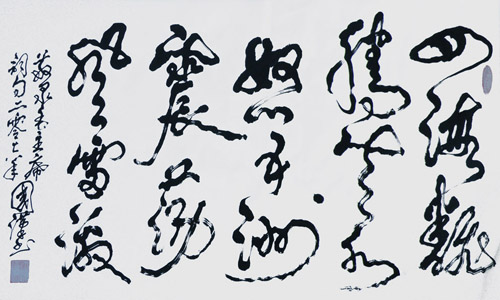 四海翻
腾云水
怒五洲
震荡
风雷激
敬录毛主席
词句二零一年国书